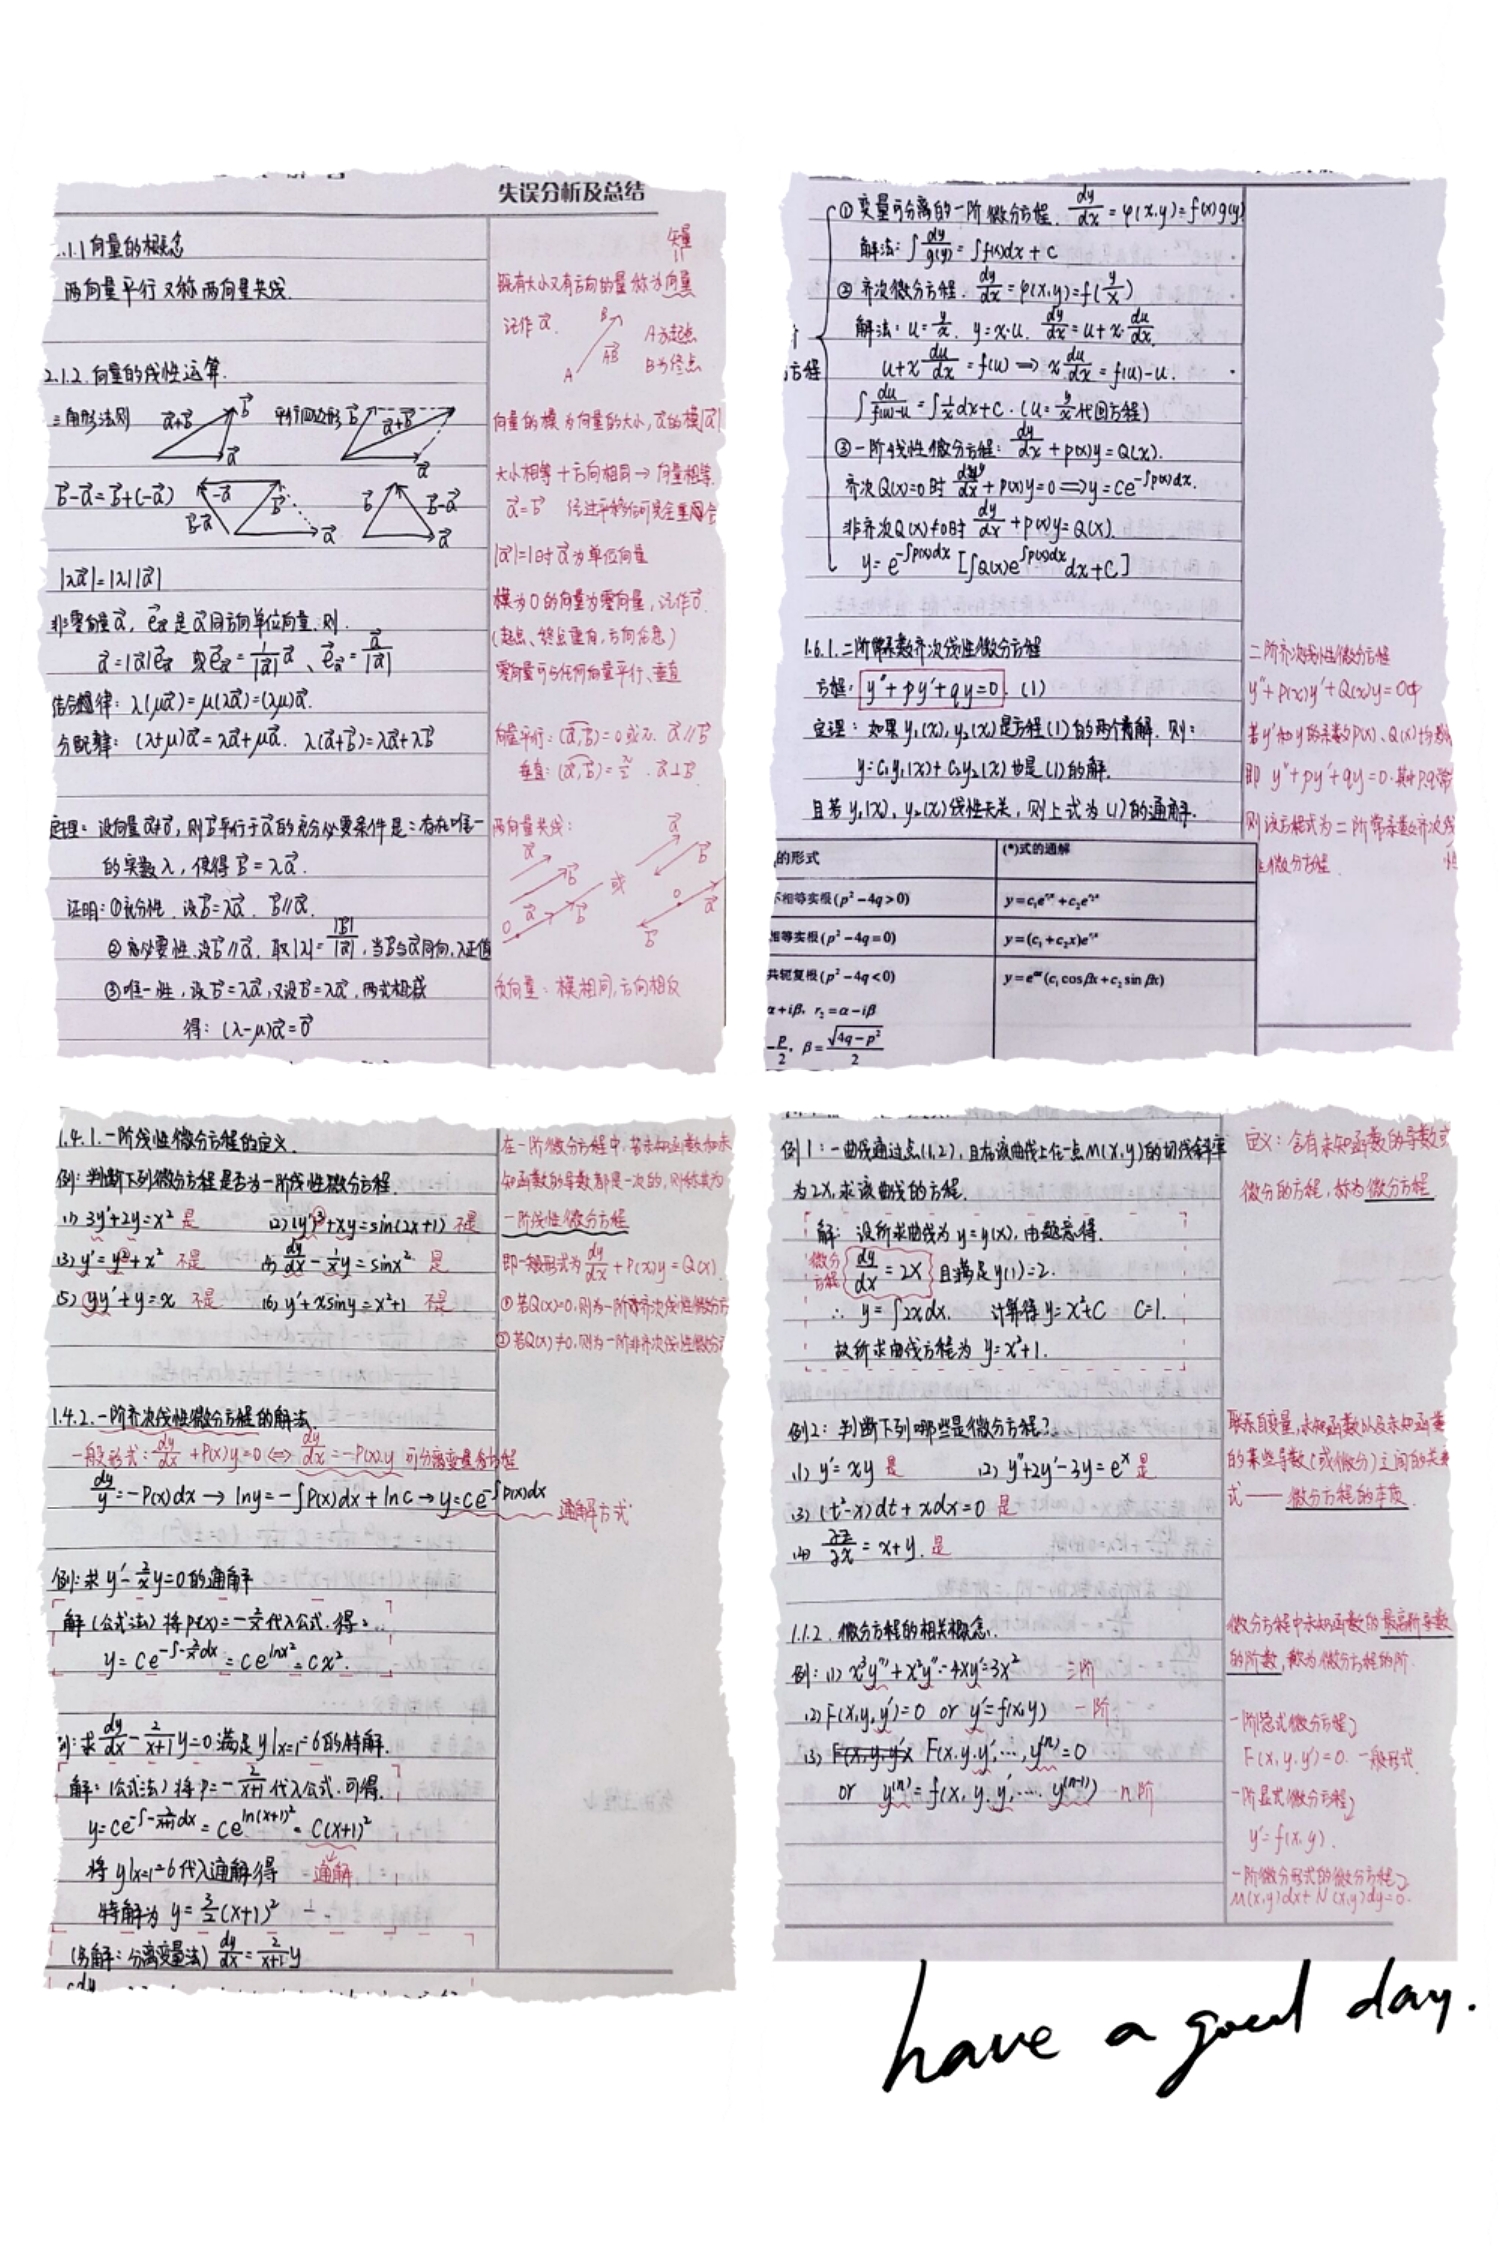 失误分析及总结
.1.1 向量的概念
两向量平行又称两向量共线.
2.1.2. 向量的线性运算.
三角形法则 a⃗+b⃗ b⃗ a⃗ 平行四边形 b⃗ a⃗+b⃗ a⃗
b⃗-a⃗=b⃗+(-a⃗) -a⃗ b⃗ b⃗-a⃗ a⃗ b⃗ b⃗-a⃗ a⃗
|λa⃗|=|λ||a⃗|
非零向量a⃗, e⃗a⃗是a⃗同方向单位向量.则.
a⃗=|a⃗|e⃗a⃗ 或e⃗a⃗=1/|a⃗| a⃗、e⃗a⃗=a⃗/|a⃗|
结合律: λ(μa⃗)=μ(λa⃗)=(λμ)a⃗.
分配律: (λ+μ)a⃗=λa⃗+μa⃗. λ(a⃗+b⃗)=λa⃗+λb⃗
定理: 设向量a⃗≠0⃗, 则b⃗平行于a⃗的充分必要条件是: 存在唯一
的实数λ, 使得b⃗=λa⃗.
证明: ①充分性. 设b⃗=λa⃗. b⃗//a⃗.
②必要性.设b⃗//a⃗. 取|λ|=|b⃗|/|a⃗|, 当b⃗与a⃗同向,λ正值
③唯一性, 设b⃗=λa⃗, 又设b⃗=μa⃗, 两式相减
得: (λ-μ)a⃗=0⃗
矢量
既有大小又有方向的量称为向量
记作a⃗. A B AB⃗ A为起点
B为终点
向量的模为向量的大小, a⃗的模|a⃗|
大小相等+方向相同→向量相等.
a⃗=b⃗ 经过平移后可完全重合
|a⃗|=1时a⃗为单位向量
模为0的向量为零向量, 记作0⃗.
(起点、终点重合, 方向任意)
零向量可与任何向量平行、垂直
向量平行: (a⃗,b⃗)=0或π. a⃗//b⃗
垂直: (a⃗,b⃗)=π/2. a⃗⊥b⃗
两向量共线:
a⃗ b⃗ 或 a⃗ b⃗
0 a⃗ b⃗ 0 a⃗ b⃗
负向量: 模相同, 方向相反
①变量可分离的一阶微分方程. dy/dx=φ(x,y)=f(x)g(y)
解法: ∫dy/g(y)=∫f(x)dx+C
②齐次微分方程. dy/dx=φ(x,y)=f(y/x)
解法: u=y/x. y=x·u. dy/dx=u+x·du/dx.
方程 u+x du/dx=f(u) ⟹ x du/dx=f(u)-u.
∫du/f(u)-u=∫1/x dx+C. (u=y/x代回方程)
③一阶线性微分方程: dy/dx+p(x)y=Q(x).
齐次Q(x)=0时 dy/dx+P(x)y=0⟹y=Ce^-∫p(x)dx.
非齐次Q(x)≠0时 dy/dx+p(x)y=Q(x).
y=e^-∫p(x)dx[∫Q(x)e^∫p(x)dx dx+C]
1.6.1.二阶常系数齐次线性微分方程
方程: y''+py'+qy=0. (1)
定理: 如果y₁(x), y₂(x)是方程(1)的两个解. 则:
y=C₁y₁(x)+C₂y₂(x)也是(1)的解.
且若y₁(x), y₂(x)线性无关, 则上式为(1)的通解.
的形式 (*)式的通解
不相等实根(p²-4q>0) y=c₁e^r₁x+c₂e^r₂x
相等实根(p²-4q=0) y=(c₁+c₂x)e^r₁x
共轭复根(p²-4q<0) y=e^αx(c₁cosβx+c₂sinβx)
α+iβ, r₂=α-iβ
-p/2, β=√4q-p²/2
二阶齐次线性微分方程
y''+p(x)y'+Q(x)y=0中
若y'和y的系数P(x)、Q(x)均为
即 y''+py'+qy=0.其中p.q常
则该方程式为二阶常系数齐次线
性微分方程.
1.4.1.一阶线性微分方程的定义.
例: 判断下列微分方程是否为一阶线性微分方程.
(1) 3y'+2y=x² 是 (2)(y')²+xy=sin(2x+1) 不是
(3) y'=y²+x² 不是 (4) dy/dx-1/x y=sinx². 是
(5) yy'+y=x 不是 (6) y'+xsiny=x²+1 不是
在一阶微分方程中, 若未知函数和未
知函数的导数都是一次的, 则称其为
一阶线性微分方程
即一般形式为dy/dx+P(x)y=Q(x).
①若Q(x)=0, 则为一阶齐次线性微分方
②若Q(x)≠0, 则为一阶非齐次线性微分方
1.4.2.一阶齐次线性微分方程的解法.
一般形式: dy/dx+P(x)y=0⟺dy/dx=-P(x)y 可分离变量方程
dy/y=-P(x)dx→lny=-∫P(x)dx+lnC→y=Ce^-∫P(x)dx
通解方式
例: 求y'-2/x y=0的通解
解(公式法)将P(x)=-2/x代入公式.得:
y=Ce^-∫-2/x dx=Ce^lnx²=Cx².
例: 求dy/dx-2/x+1 y=0满足y|x=1=6的特解.
解: (公式法)将P=-2/x+1代入公式.可得.
y=Ce^-∫-2/x+1 dx=Ce^ln(x+1)²=C(x+1)²
将y|x=1=6代入通解得 通解
特解为 y=3/2(x+1)²
(另解: 分离变量法) dy/dx=2/x+1 y
例1: 一曲线通过点(1,2), 且在该曲线上任一点M(x,y)的切线斜率
为2x, 求该曲线的方程.
解: 设所求曲线为y=y(x), 由题意得.
微分方程 dy/dx=2x 且满足y(1)=2.
∴ y=∫2xdx. 计算得y=x²+C C=1.
故所求曲线方程为 y=x²+1.
定义: 含有未知函数的导数或
微分的方程, 称为微分方程
例2: 判断下列哪些是微分方程?
(1) y'=xy 是 (2) y''+2y'-3y=e^x 是
(3) (t²-x)dt+xdx=0 是
(4) ∂z/∂x=x+y. 是
联系自变量,未知函数以及未知函数
的某些导数(或微分)之间的关系
式——微分方程的本质.
1.1.2. 微分方程的相关概念.
例: (1) x³y'''+x²y''-4xy'=3x² 三阶
(2) F(x,y,y')=0 or y'=f(x,y) 一阶
(3) F(x,y,y',…,y^(n))=0
or y^(n)=f(x,y,y',…,y^(n-1)) n阶
微分方程中未知函数的最高阶导数
的阶数, 称为微分方程的阶.
一阶隐式微分方程
F(x,y,y')=0. 一般形式.
一阶显式微分方程
y'=f(x,y).
一阶微分形式的微分方程
M(x,y)dx+N(x,y)dy=0.
have a good day.